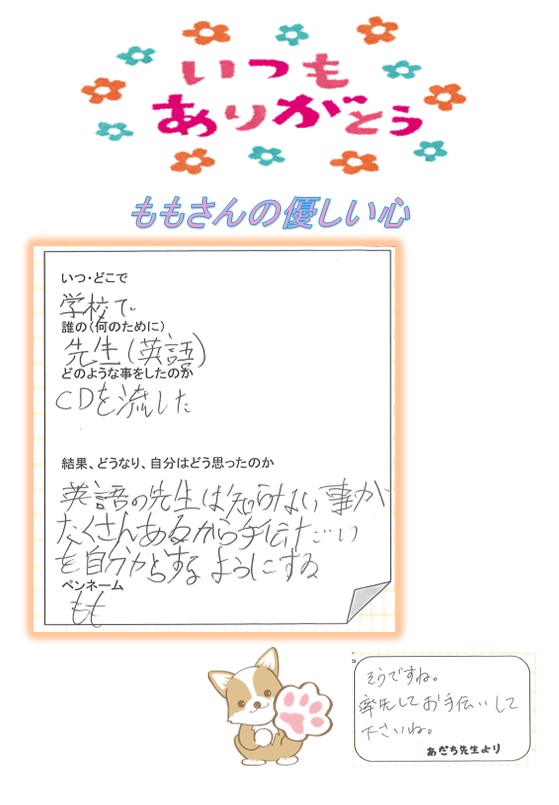 いつも
ありがとう
ももさんの優しい心
いつ・どこで
学校で
誰の(何のために)
先生(英語)
どのような事をしたのか
CDを流した
結果、どうなり、自分はどう思ったのか
英語の先生は知らない事が
たくさんあるから手伝だい
を自分からするようにする
ペンネーム
もも
そうですね。
率先してお手伝いして
下さいね。
あだち先生より